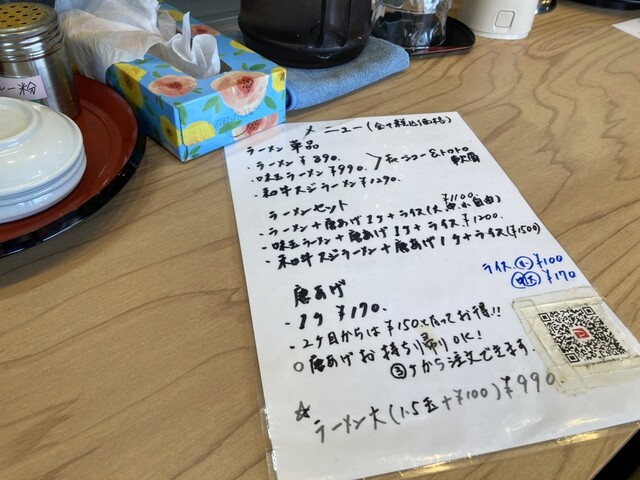 ー粉
メニュー(全て税込価格)
ラーメン単品
・ラーメン ¥890.
・味玉ラーメン ¥990.
・和牛スジラーメン ¥1290.
軟骨
ラーメンセット
・ラーメン+唐あげ1ケ+ライス(大中小自由) ¥1100.
・味玉ラーメン+唐あげ1ケ+ライス. ¥1200.
・和牛スジラーメン+唐あげ1ケ+ライス(¥1500)
ライス.小 ¥100
¥170
唐あげ
・1ケ ¥170.
・2ケ目からは¥150となってお得!!
○唐あげお持ち帰りOK!
③ケから注文できます.
☆ラーメン大(1.5玉+¥100)¥990.